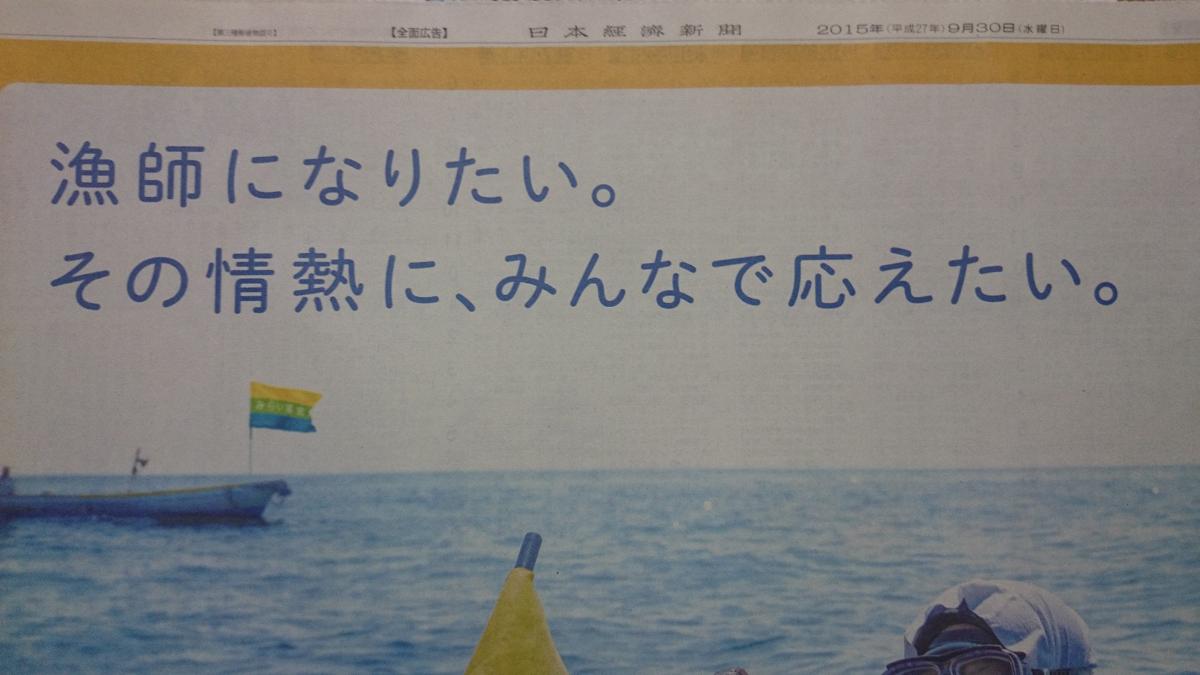 【第三種郵便物認可】 【全面広告】 日本経済新聞 2015年(平成27年)9月30日(水曜日)
漁師になりたい。
その情熱に、みんなで応えたい。